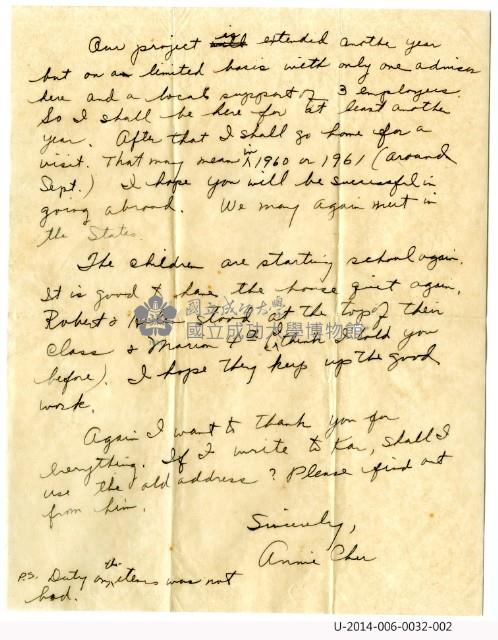 Our project is extended anothe year
but on a limited basis with only one adviser
here and a local support of 3 employees.
So I shall be here for at least another
year. After that I shall go home for a
visit. That may mean in 1960 or 1961 (around
Sept.) I hope you will be successful in
going abroad. We may again meet in
the States.
The children are starting school again.
It is good to have the house quiet again.
Robert & stood at the top of their
class & Marion (think I told you
before). I hope they keep up the good
work.
Again I want to thank you for
everything. If I write to Kao, shall I
use the old address? Please find out
from him.
Sincerely,
Annie Chu
P.S. Duty on the items was not
bad.
國立成功大學
國立成功大學博物館
U-2014-006-0032-002